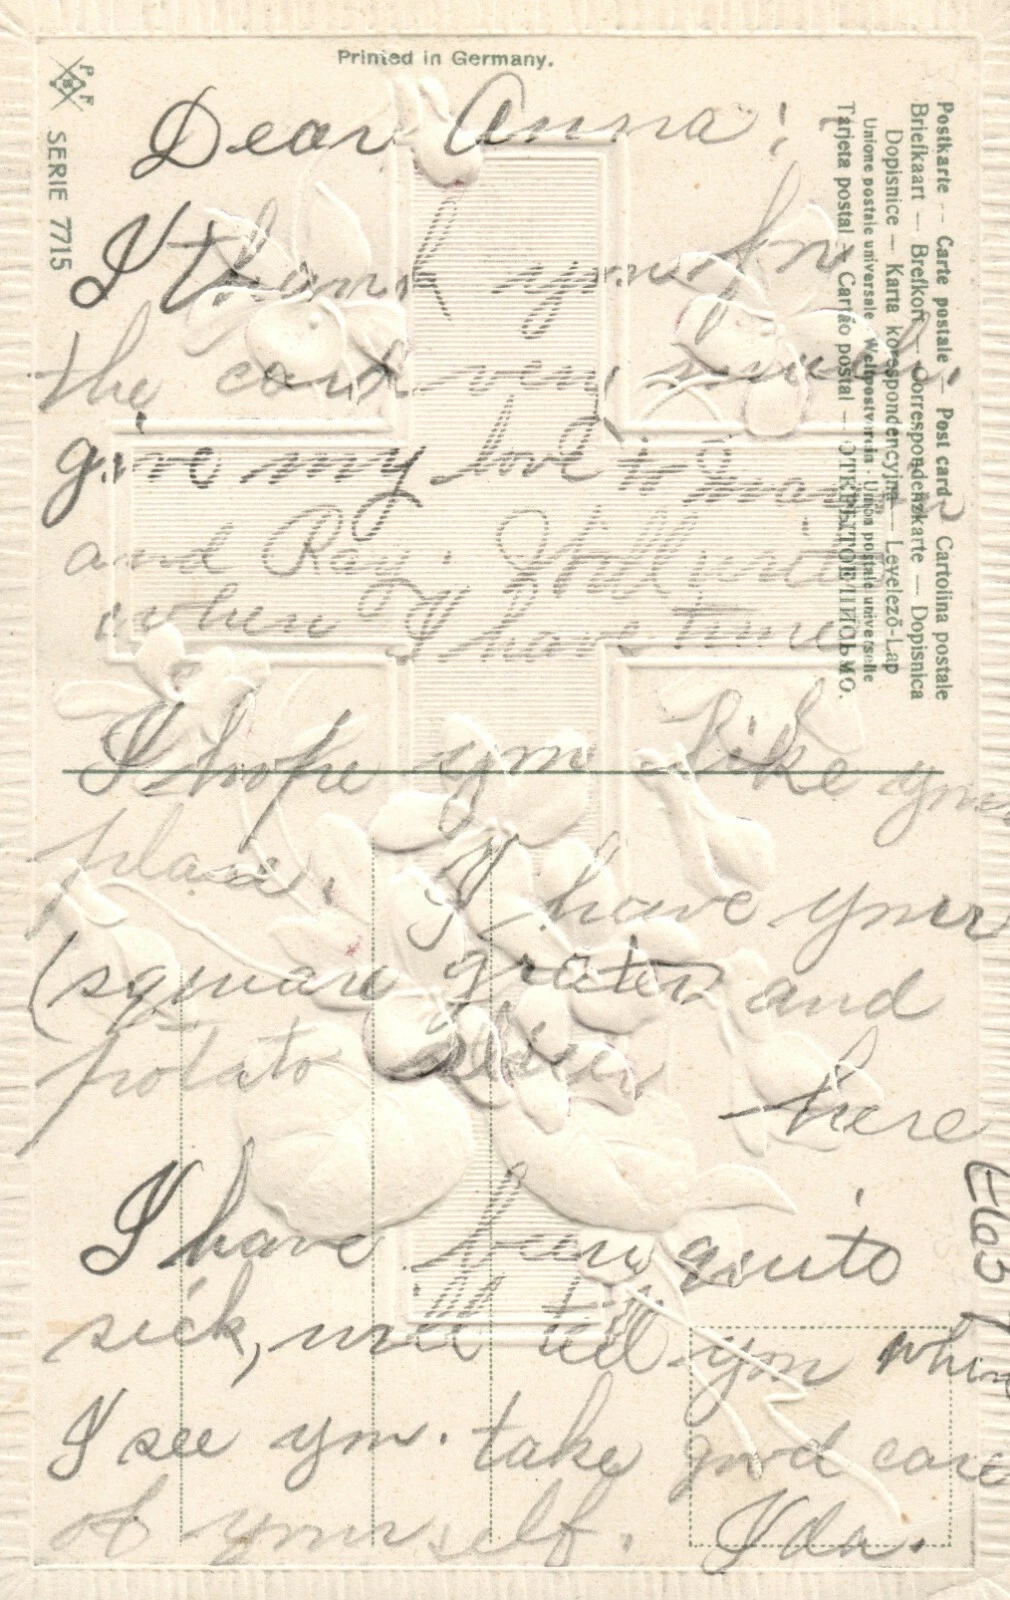 Printed in Germany.
P F B
SERIE 7715
Postkarte -- Carte postale -- Post card Cartolina postale
Briefkaart -- Brefkort -- Correspondenzkarte -- Dopisnica
Dopisnice -- Karta korespondencyjna -- Levelező-Lap
Unione postale universale Weltpostverein - Unión postale universelle
Tarjeta postal -- Cartão postal -- ОТКРЫТОЕ ПИСЬМО.
Dear Anna:
I thank you for
the card very much.
give my love to
and Ray. Will write
when I have time
I hope you like your
place. I have your
(square grater and
potato slicer here
I have been quite
sick, will tell you when
I see you. take good care
of yourself. Ida.